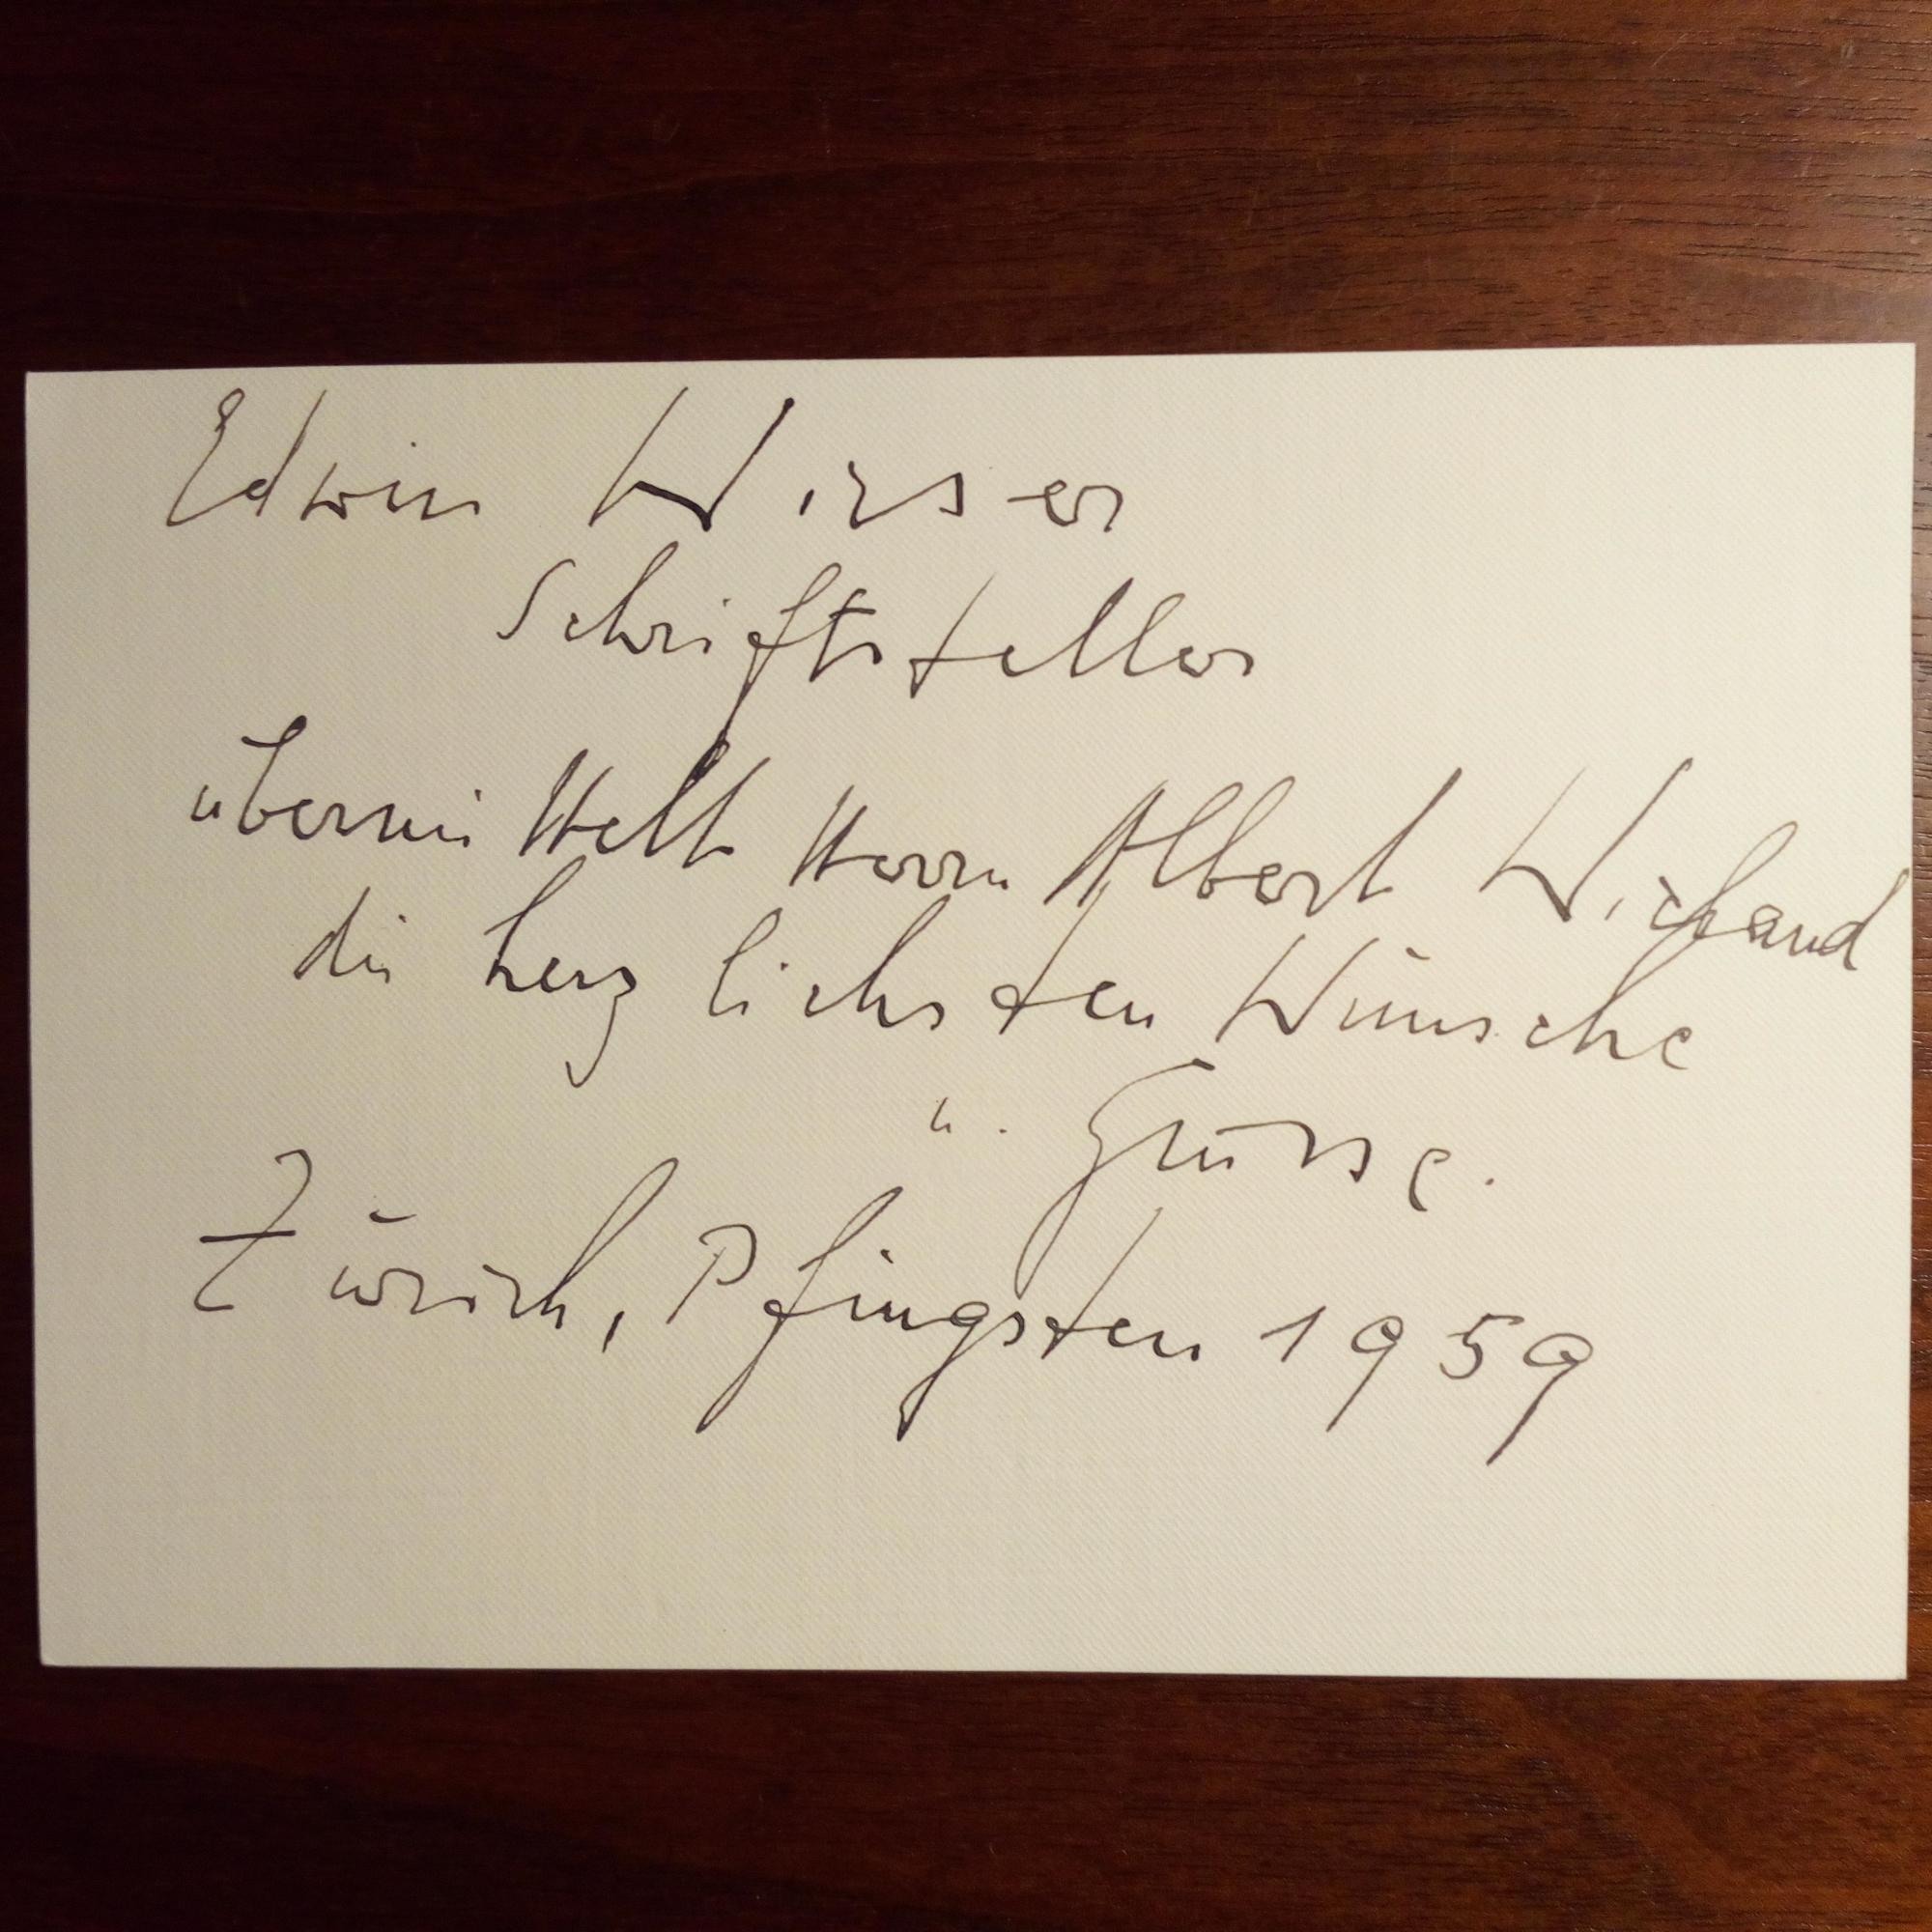 Edwin Wieser
Schriftsteller
übermittelt Herrn Albert Wichand
die herzlichsten Wünsche
u. Grüsse.
Zürich, Pfingsten 1959